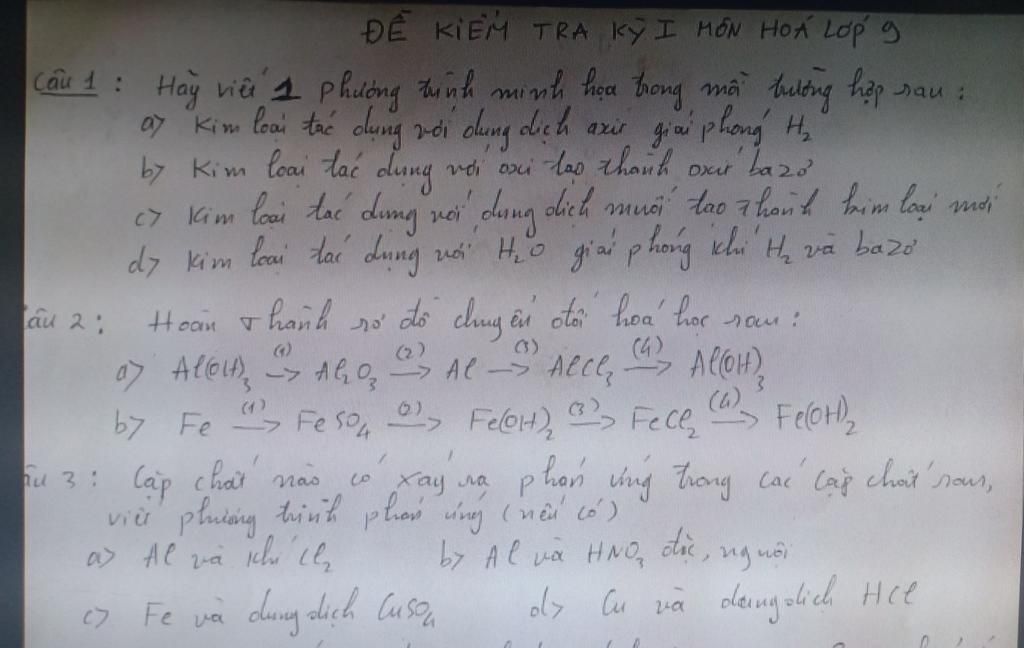 ĐỀ KIỂM TRA KỲ I MÔN HOÁ LỚP 9
Câu 1 : Hãy viết 1 phương trình minh họa trong mỗi trường hợp sau :
a) Kim loại tác dụng với dung dịch axit giải phóng H₂
b) Kim loại tác dụng với oxi tạo thành oxit bazơ
c) Kim loại tác dụng với dung dịch muối tạo thành kim loại mới
d) Kim loại tác dụng với H₂O giải phóng khí H₂ và bazơ
Câu 2 : Hoàn thành sơ đồ chuyển đổi hoá học sau :
a) Al(OH)₃ (1)→ Al₂O₃ (2)→ Al (3)→ AlCl₃ (4)→ Al(OH)₃
b) Fe (1)→ FeSO₄ (2)→ Fe(OH)₂ (3)→ FeCl₂ (4)→ Fe(OH)₂
âu 3 : Cặp chất nào có xảy ra phản ứng trong các cặp chất sau,
viết phương trình phản ứng (nếu có)
a) Al và khí Cl₂ b) Al và HNO₃ đặc, nguội
c) Fe và dung dịch CuSO₄ d) Cu và dung dịch HCl